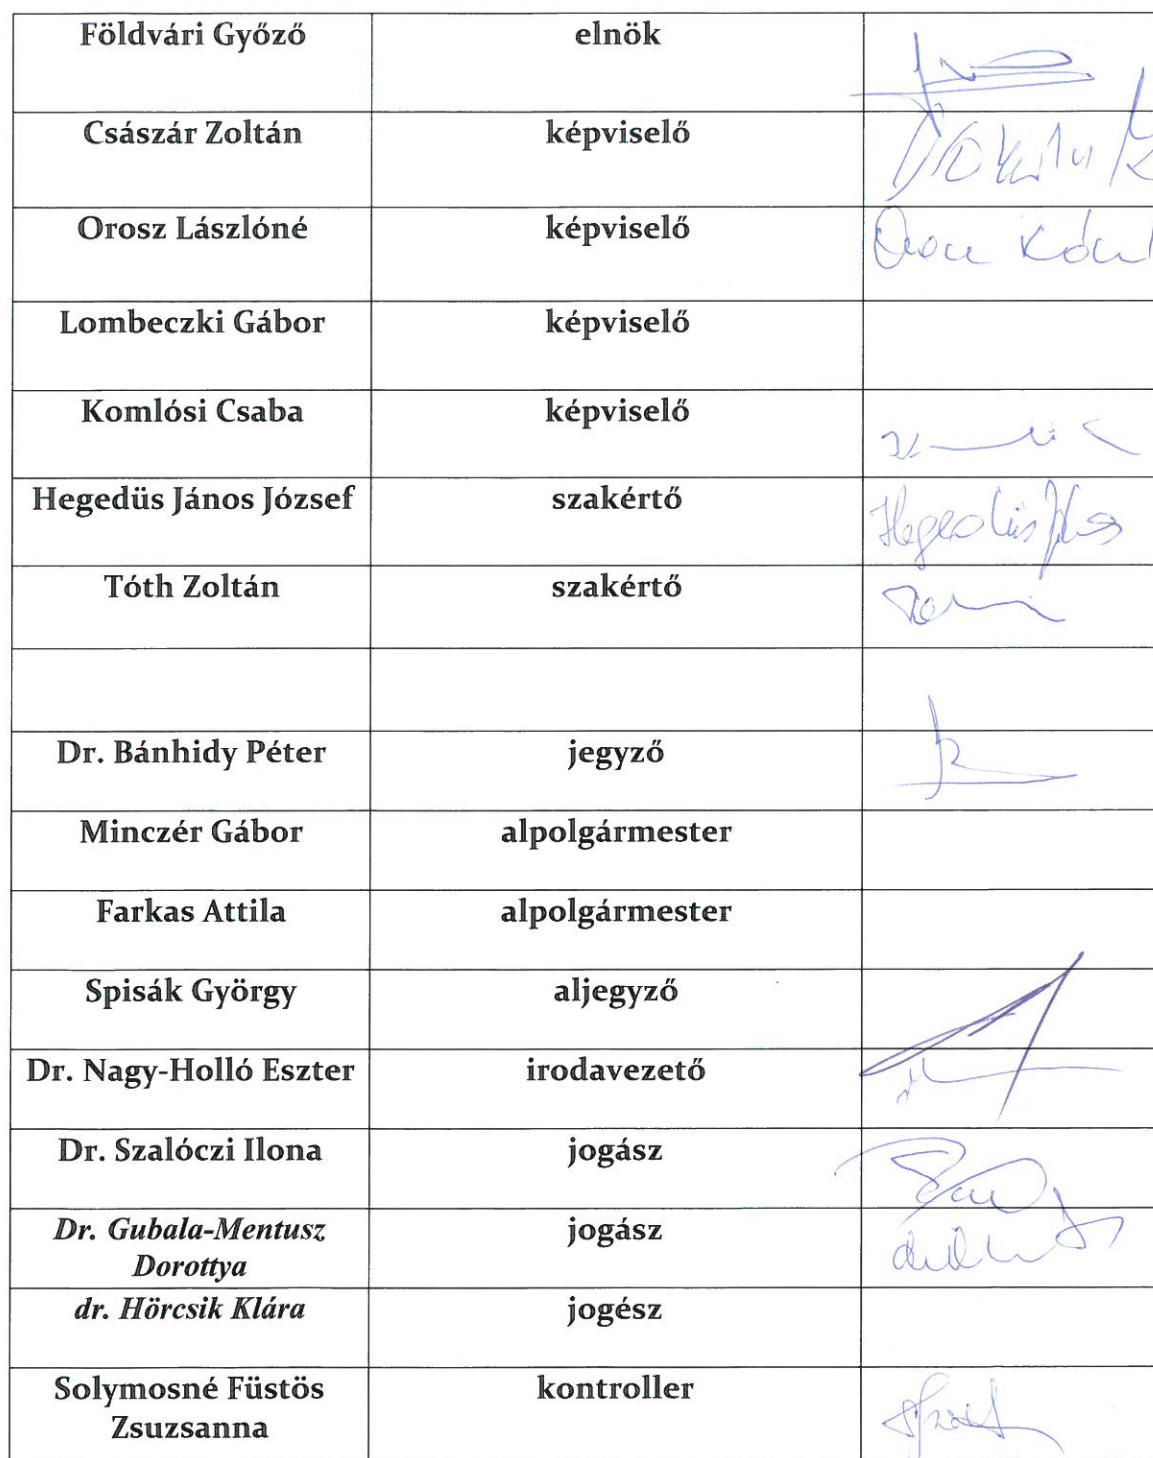 Földvári Győző elnök
Császár Zoltán képviselő
Orosz Lászlóné képviselő
Lombeczki Gábor képviselő
Komlósi Csaba képviselő
Hegedüs János József szakértő
Hegedüs János
Tóth Zoltán szakértő
Dr. Bánhidy Péter jegyző
Minczér Gábor alpolgármester
Farkas Attila alpolgármester
Spisák György aljegyző
Dr. Nagy-Holló Eszter irodavezető
Dr. Szalóczi Ilona jogász
Dr. Gubala-Mentusz jogász
Dorottya
dr. Hörcsik Klára jogész
Solymosné Füstös kontroller
Zsuzsanna